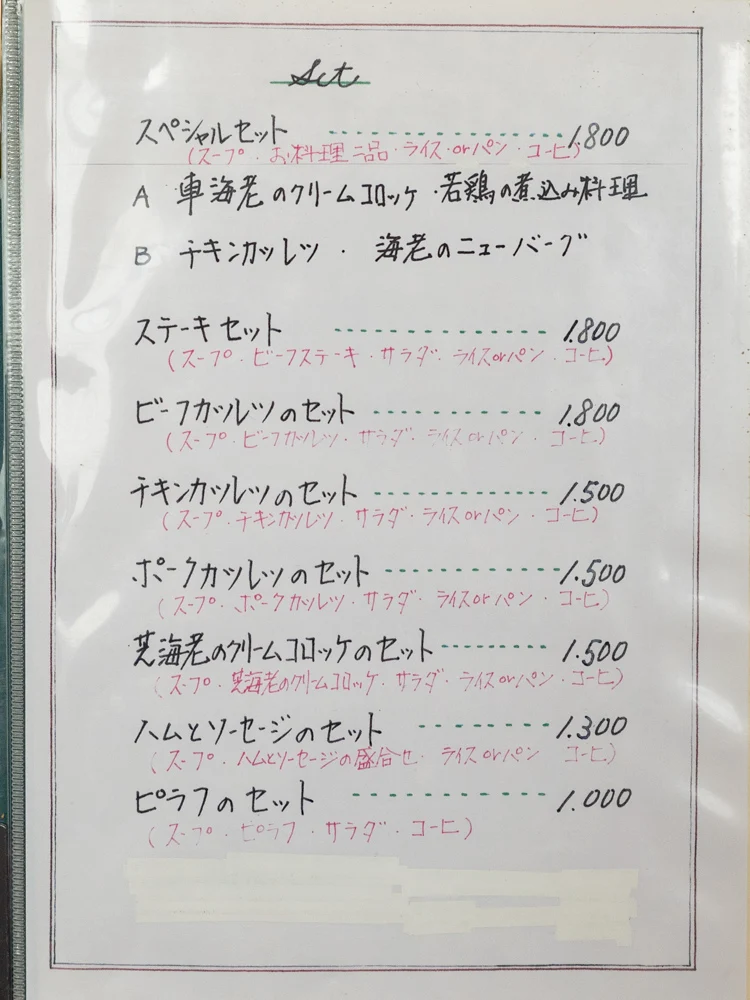 Set
スペシャルセット ------------- 1.800
(スープ・お料理二品・ライスorパン・コーヒ)
A 車海老のクリームコロッケ・若鶏の煮込み料理
B チキンカツレツ ・ 海老のニューバーグ
ステーキセット ------------- 1.800
(スープ・ビーフステーキ・サラダ・ライスorパン・コーヒ)
ビーフカツレツのセット ---------- 1.800
(スープ・ビーフカツレツ・サラダ・ライスorパン・コーヒ)
チキンカツレツのセット ----------- 1.500
(スープ・チキンカツレツ・サラダ・ライスorパン・コーヒ)
ポークカツレツのセット ----------- 1.500
(スープ・ポークカツレツ・サラダ・ライスorパン・コーヒ)
芝海老のクリームコロッケのセット -------- 1.500
(スープ・芝海老のクリームコロッケ・サラダ・ライスorパン・コーヒ)
ハムとソーセージのセット -------- 1.300
(スープ・ハムとソーセージの盛合せ・ライスorパン コーヒ)
ピラフのセット ------------ 1.000
(スープ・ピラフ・サラダ・コーヒ)